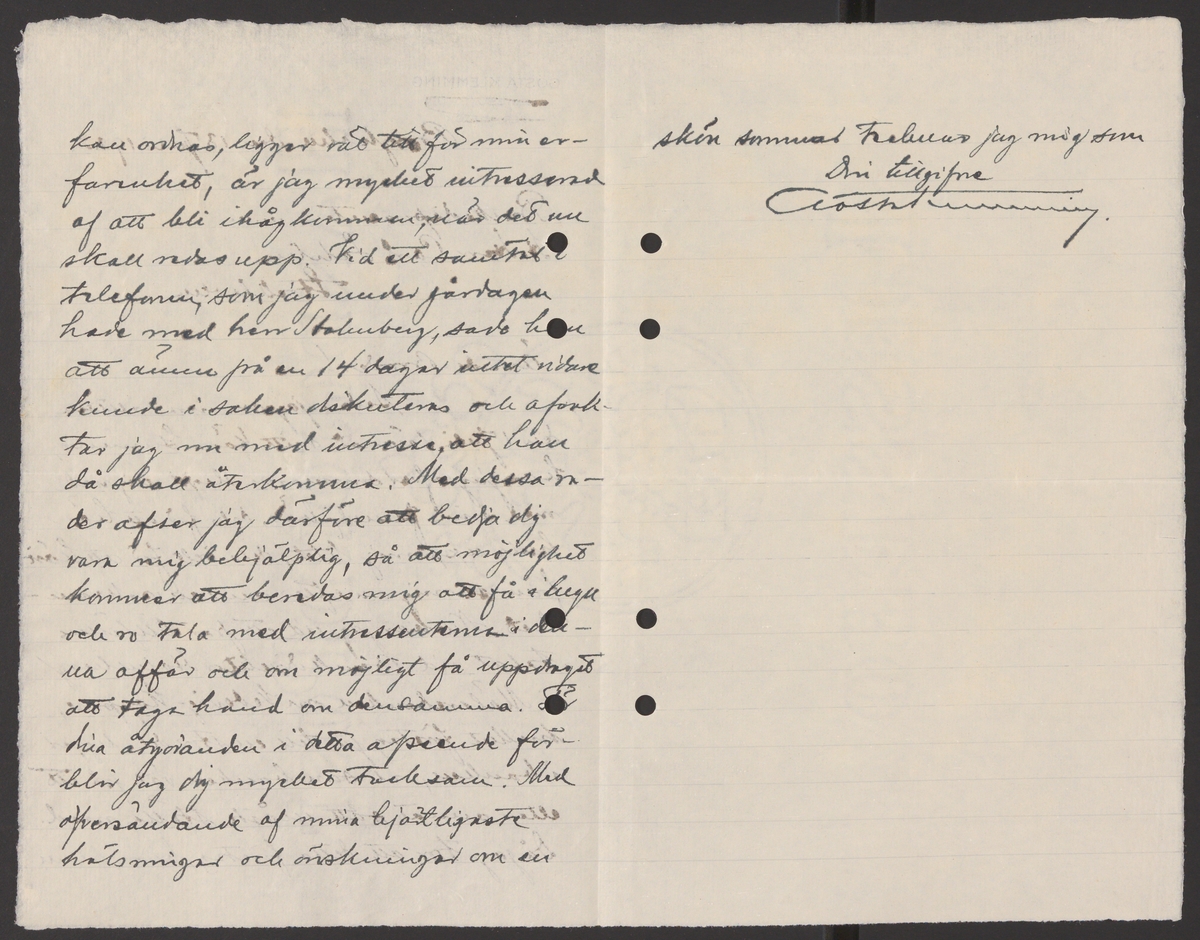 kan ordnas, ligger rät till för min er-
farenhet, är jag mycket intresserad
af att bli ihågkommen, när det nu
skall redas upp. Vid ett samtal i
telefonen, som jag under gårdagen
hade med herr Stalenberg, sade han
att ännu på en 14 dagar intet vidare
kunde i saken diskuteras och afvak-
tar jag nu med intresse, att han
då skall återkomma. Med dessa ra-
der afser jag därföre att bedja dig
vara mig behjälplig, så att möjlighet
kommer att beredas mig att få i lugn
och ro tala med intressenterna i den-
na affär och om möjligt få uppdraget
att taga hand om densamma. För
dina åtgöranden i detta afseende för-
blir jag dig mycket tacksam. Med
öfversändande af mina hjärtligaste
hälsningar och önskningar om en
skön sommar tecknar jag mig som
Din tillgifne
Gösta Klemming.
GÖSTA KLEMMING